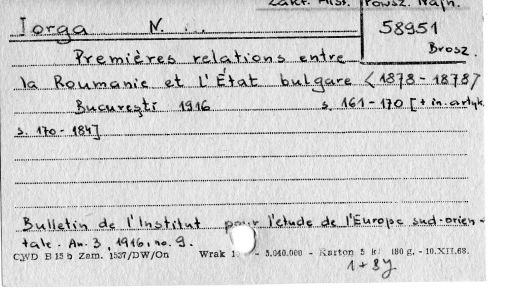 Zakł. Hist. Powsz. Najn.
Iorga N. ...
58951
Brosz.
Premières relations entre
la Roumanie et l'État bulgare <1878-1878>
Bucureşti 1916 s. 161-170 [+ in. artyk.
s. 170-184]
Bulletin de l'Institut pour l'étude de l'Europe sud-orien-
tale. An. 3, 1916, no. 9.
CWD B 15 b Zam. 1537/DW/On Wrak 1 - 5.040.000 - Karton 5 kl 180 g. - 10.XII.68.
1+8y